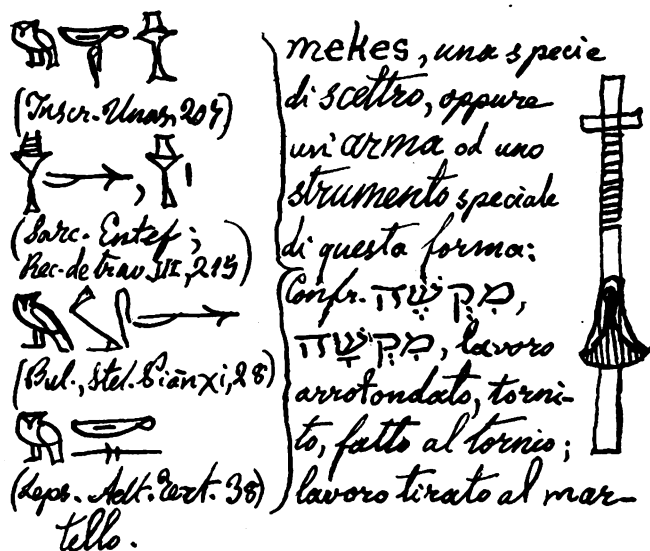 (Inscr. Unas,
(Sarc. Entef;
Rec. de trav. III, 215)
(Bul., Stel. Piānχi, 28)
(Leps. Aelt. Text. 38)
mekes, una specie
di scettro, oppure
un' arma od uno
strumento speciale
di questa forma:
Confr. מִקְשֶׁה,
מִקְשָׁה, lavoro
arrotondato, torni-
to, fatto al tornio;
lavoro tirato al mar-
tello.